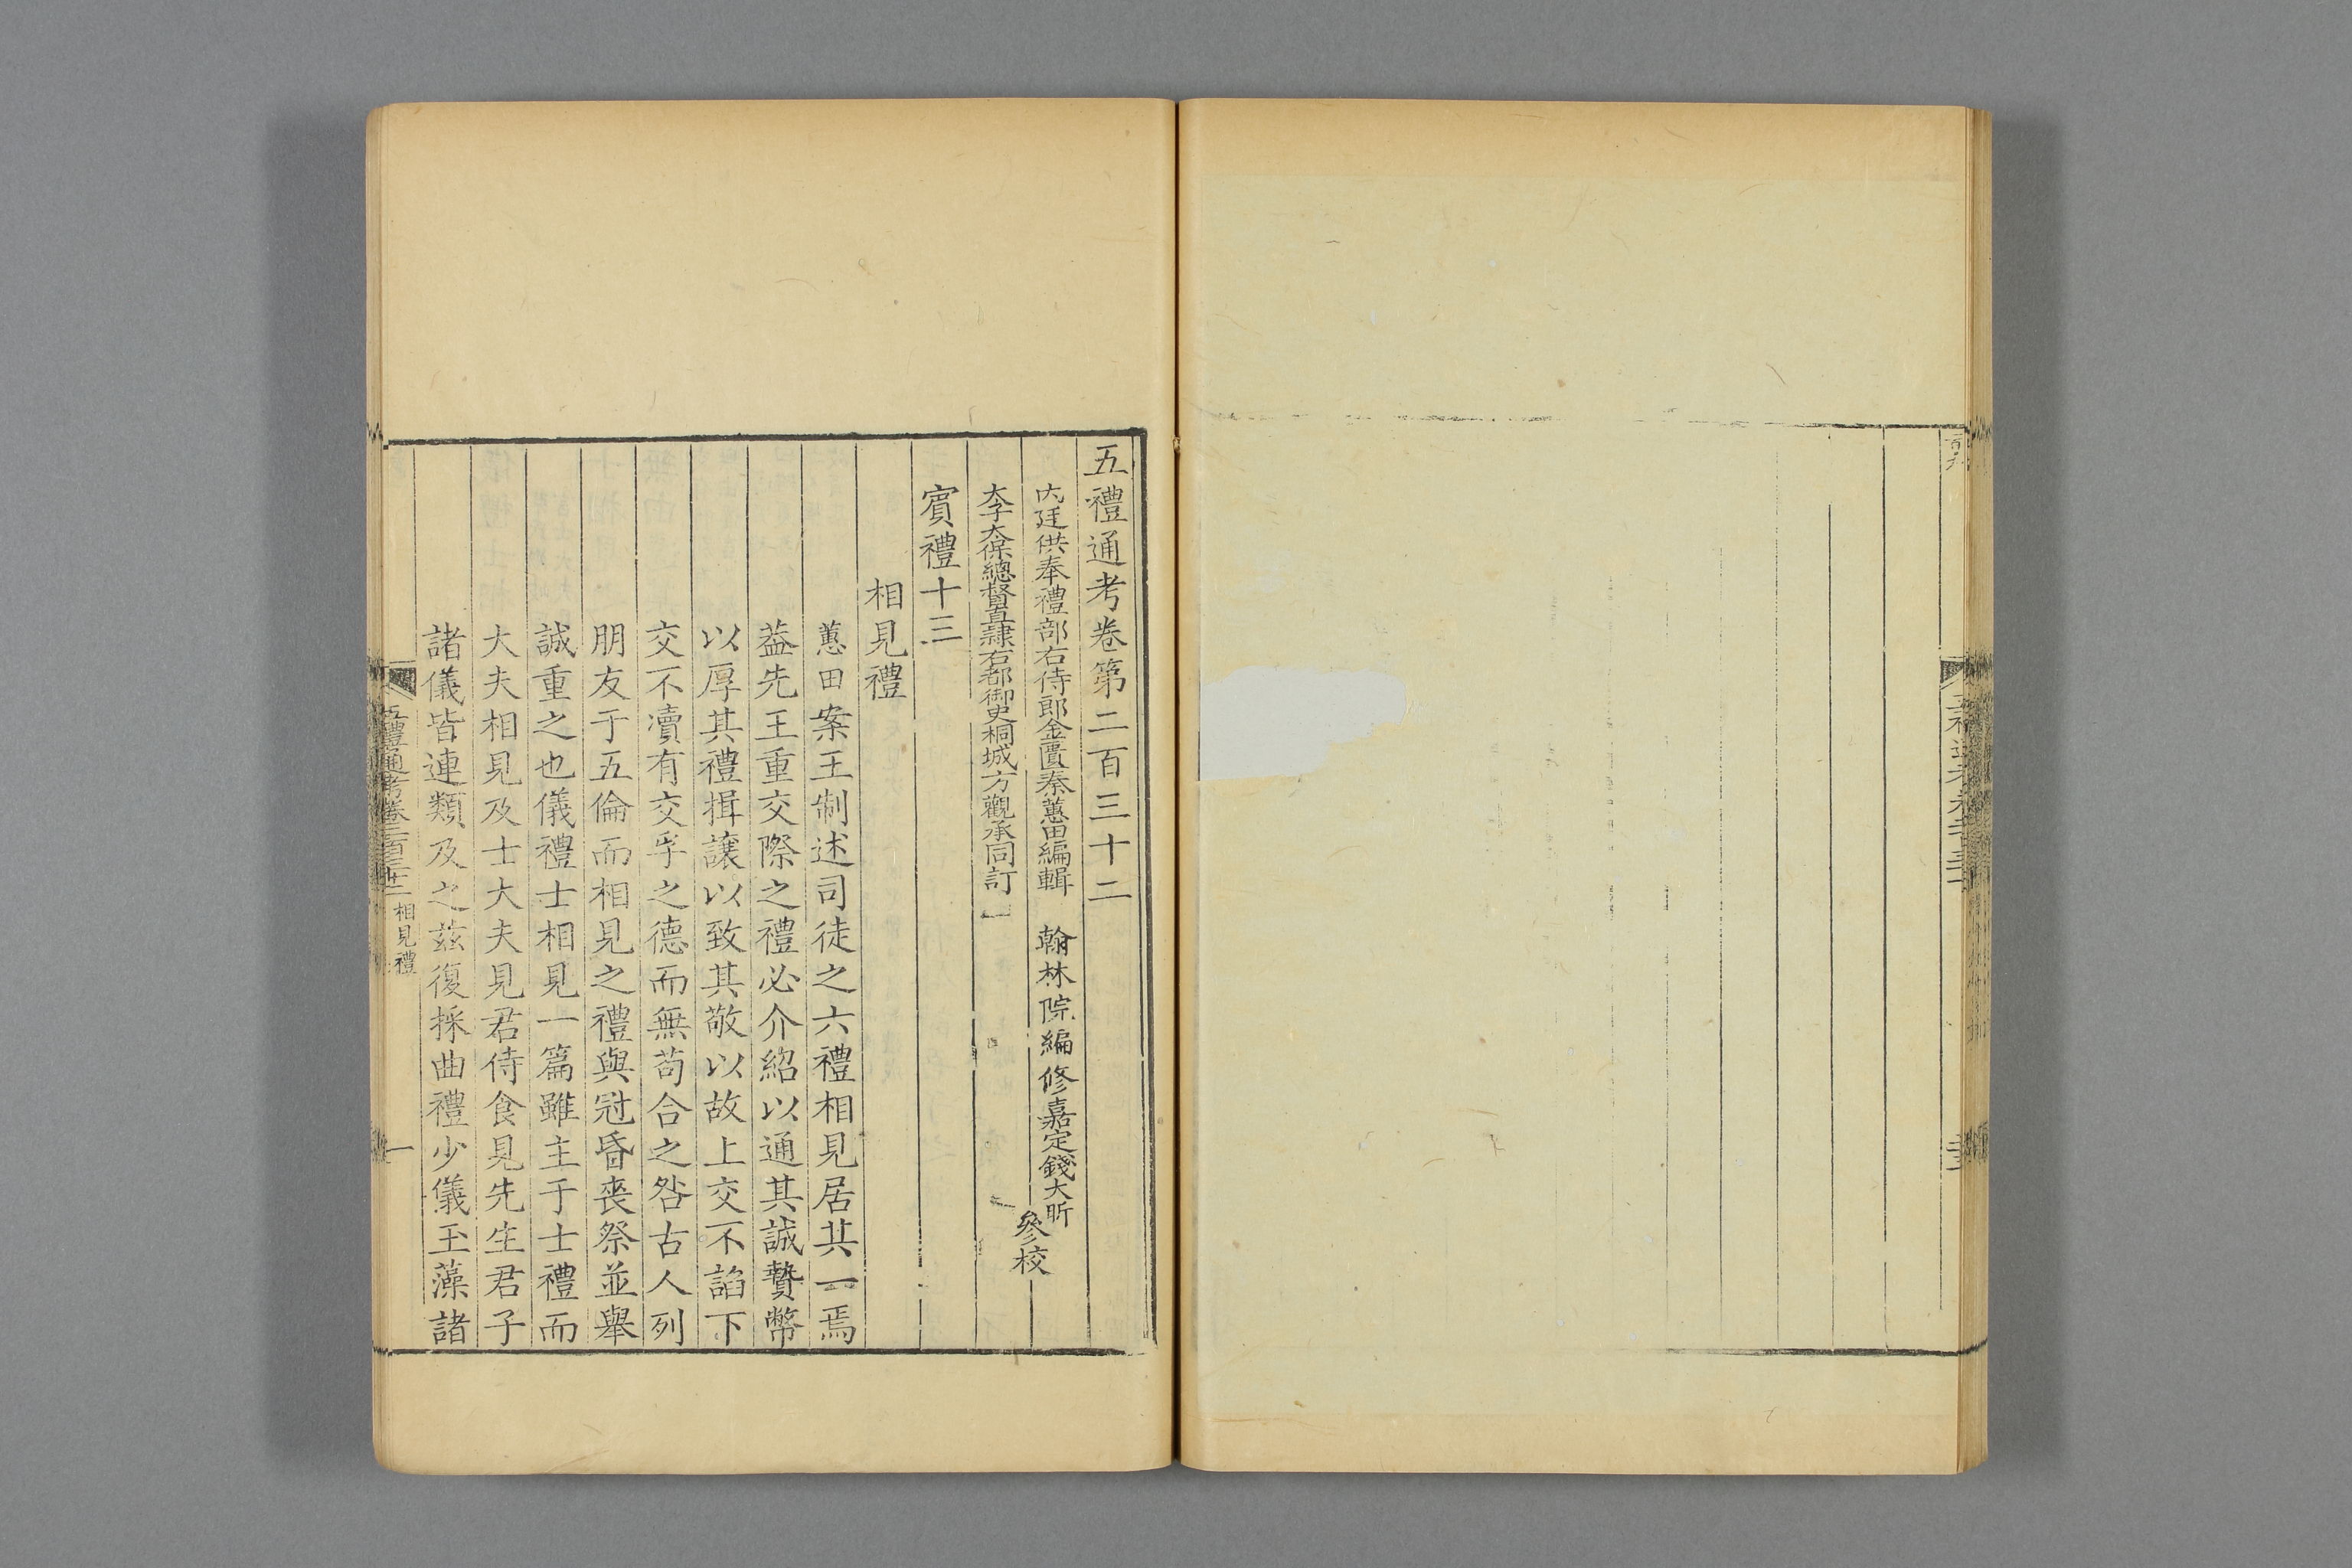 五禮通考卷第二百三十二
內廷供奉禮部右侍郎金匱秦蕙田編輯　翰林院編修嘉定錢大昕
參校
太子太保總督直隸右都御史桐城方觀承同訂
賓禮十三
相見禮
蕙田案王制述司徒之六禮相見居其一焉
葢先王重交際之禮必介紹以通其誠贄幣
以厚其禮揖讓以致其敬以故上交不諂下
交不瀆有交孚之德而無苟合之咎古人列
朋友于五倫而相見之禮與冠昏喪祭並舉
誠重之也儀禮士相見一篇雖主于士禮而
大夫相見及士大夫見君侍食見先生君子
諸儀皆連類及之茲復採曲禮少儀玉藻諸
五禮通考卷二百三十二　相見禮　一